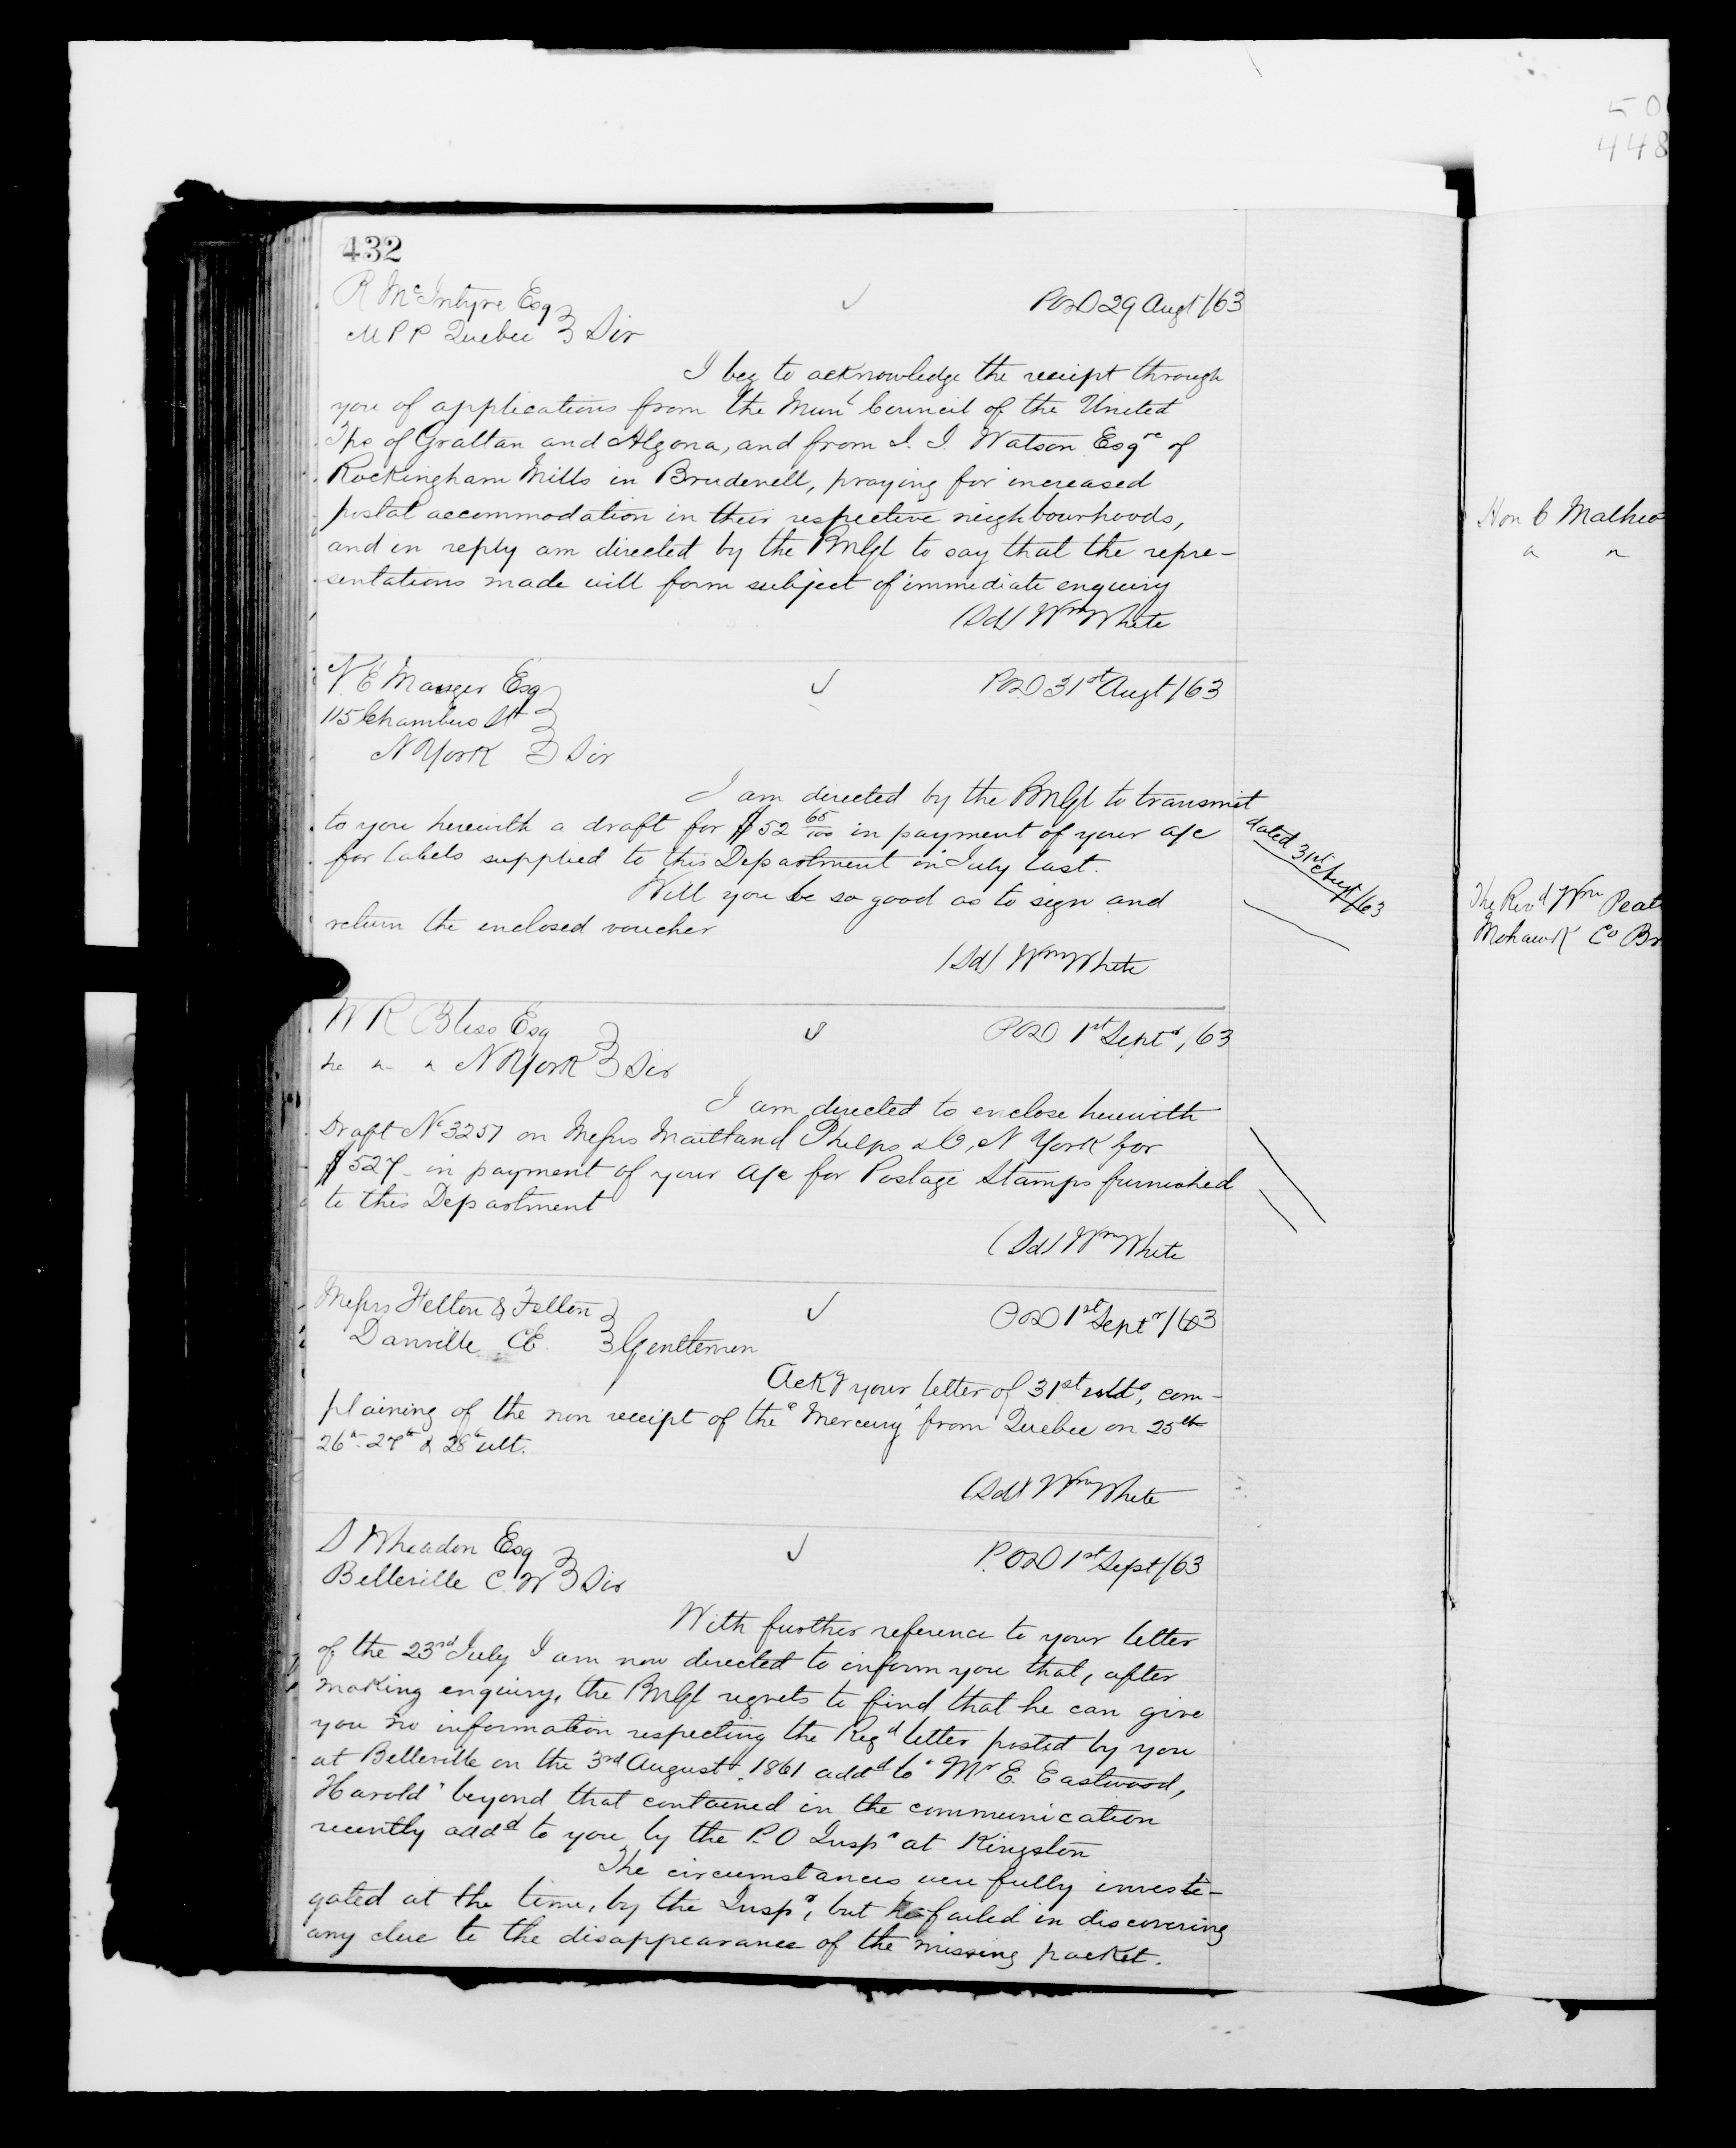 50
448
432
R McIntyre Esq
POD 29 Augt /63
M P P Quebec } Sir
I beg to acknowledge the receipt through
you of applications from the Munl Council of the United
Tps of Grattan and Algona, and from I. I. Watson Esqre of
Rockingham Mills in Brudenell, praying for increased
postal accommodation in their respective neighbourhoods,
and in reply am directed by the PMGl to say that the repre-
sentations made will form subject of immediate enquiry
(Sd) Wm White
N. E Esq
POD 31st Augt /63
115 Chambers St
N York } Sir
I am directed by the PMGl to transmit
to you herewith a draft for $52 65/100 in payment of your a/c
for labels supplied to this Department in July last.
dated 31st Augt /63
Will you be so good as to sign and
return the enclosed voucher
(Sd) Wm White
W R Bliss Esq
POD 1st Septr, 63
N York } Sir
I am directed to enclose herewith
Draft No 3257 on Messrs Maitland Phelps & Co, N York for
$527 - in payment of your a/c for Postage Stamps furnished
to this Department
(Sd) Wm White
Messrs Felton & Felton
POD 1st Septr /63
Danville CE. } Gentlemen
Ackg your letter of 31st ulto, com-
plaining of the non receipt of the "Mercury" from Quebec on 25th
26th 27th & 28th ult.
(Sd) Wm White
S Wheadon Esq
P.OD 1st Sept /63
Belleville C. W } Sir
With further reference to your letter
of the 23rd July I am now directed to inform you that, after
making enquiry, the PMGl regrets to find that he can give
you no information respecting the Regd letter posted by you
at Belleville on the 3rd August 1861 addd to "Mr E. Eastwood,
Harold" beyond that contained in the communication
recently addd to you by the P.O Inspr at Kingston
The circumstances were fully investi-
gated at the time, by the Inspr, but he failed in discovering
any clue to the disappearance of the missing packet.
Hon C
The Revd Wm
Mohawk Co